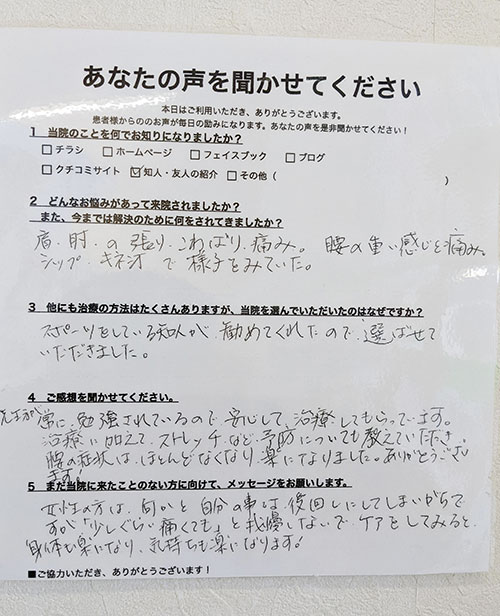 あなたの声を聞かせてください
本日はご利用いただき、ありがとうございます。
患者様からののお声が毎日の励みになります。あなたの声を是非聞かせてください！
1 当院のことを何でお知りになりましたか？
□ チラシ □ ホームページ □ フェイスブック □ ブログ
□ クチコミサイト ☑ 知人・友人の紹介 □ その他（ ）
2 どんなお悩みがあって来院されましたか？
また、今までは解決のために何をされてきましたか？
肩・肘・の張り・こわばり・痛み。 腰の重い感じと痛み。
シップ・キネシオで様子をみていた。
3 他にも治療の方法はたくさんありますが、当院を選んでいただいたのはなぜですか？
スポーツをしている知人が、勧めてくれたので、選ばせて
いただきました。
4 ご感想を聞かせてください。
先生が常に、勉強されているので、安心して、治療してもらっています。
治療に加えて、ストレッチなど、予防についても教えていただき、
腰の症状は、ほとんどなくなり、楽になりました。ありがとうござい
ます！
5 まだ当院に来たことのない方に向けて、メッセージをお願いします。
女性の方は、何かと自分の事は、後回しにしてしまいがちで
すが「少しぐらい痛くても」と我慢しないで、ケアをしてみると、
身体も楽になり、気持ちも楽になります！
■ご協力いただき、ありがとうございます！